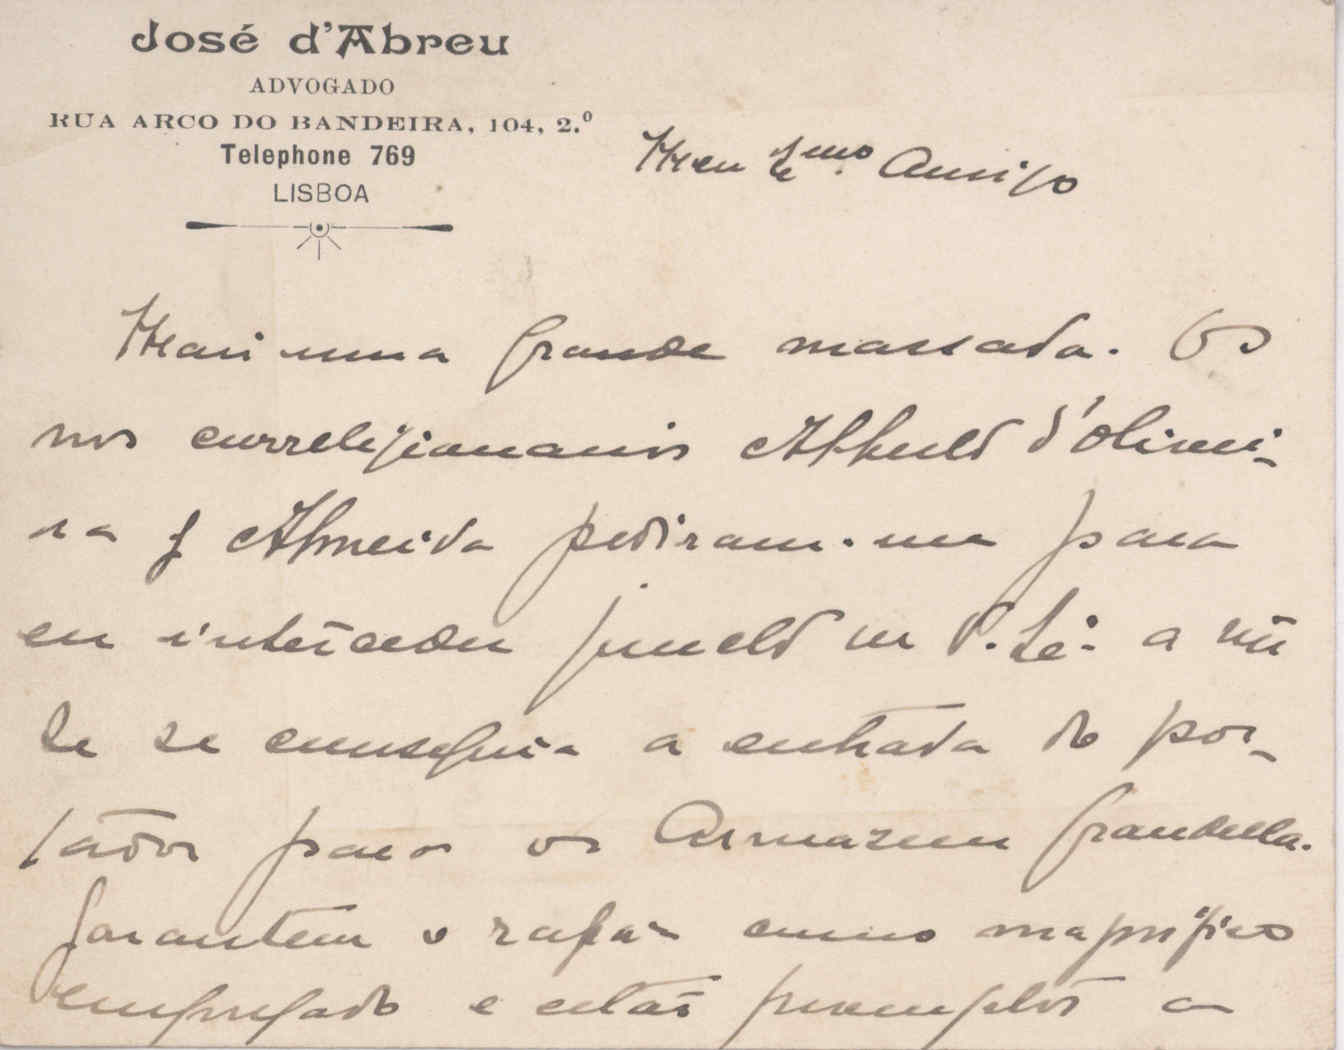 José d'Abreu
ADVOGADO
RUA ARCO DO BANDEIRA, 104, 2.º
Telephone 769
LISBOA
Meu Exmo. Amigo
Mais uma grande massada. Os
nos correligionarios Alberto d'Olivei-
ra e Almeida pediram-me para
eu interceder junto de V. Exª. a vêr
se se conseguia a entrada do por-
tador para os Armazens Grandella.
Garantem o rapaz como magnifico
empregado e estão promptos a